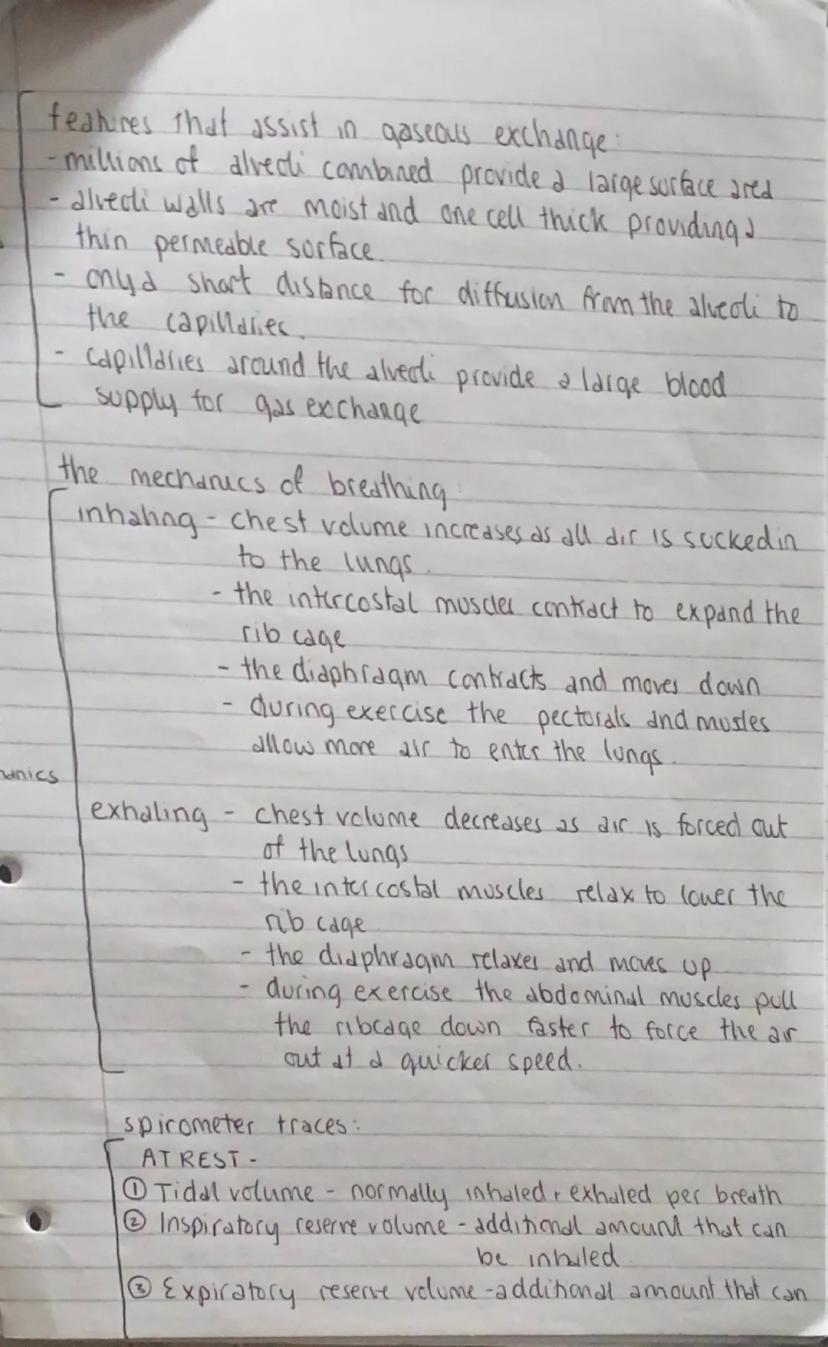 features that assist in gaseous exchange:
- millions of alveoli combined provide a large surface area
- alveoli walls are moist and one cell thick providing a
thin permeable sorface.
- only a short distance for diffusion from the alveoli to
the capillaries.
- capillaries around the alveoli provide a large blood
supply for gas exchange
the mechanics of breathing:
inhaling - chest volume increases as all air is sucked in
to the lungs.
- the intercostal muscles contract to expand the
rib cage
- the diaphragm contracts and moves down
- during exercise the pectorals and musles
allow more air to enter the lungs.
exhaling - chest volume decreases as air is forced out
of the lungs
- the intercostal muscles relax to lower the
rib cage.
- the diaphragm relaxes and moves up
- during exercise the abdominal muscles pull
the ribcage down faster to force the air
out at a quicker speed.
spirometer traces:
AT REST -
① Tidal volume - normally inhaled + exhaled per breath
② Inspiratory reserve volume - additional amount that can
be inhaled.
③ Expiratory reserve volume - additional amount that can